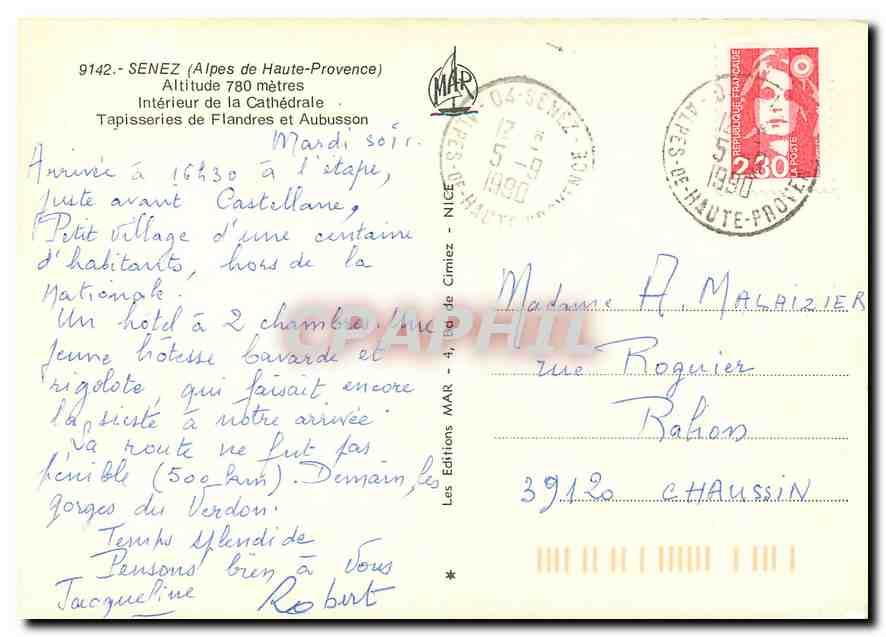 9142.- SENEZ (Alpes de Haute-Provence)
Altitude 780 mètres
Intérieur de la Cathédrale
Tapisseries de Flandres et Aubusson
Mardi soir.
Arrivée à 16h30 à l'étape,
juste avant Castellane,
Petit village d'une centaine
d'habitants, hors de la
Nationale.
Un hôtel à 2 chambres. Une
jeune hôtesse bavarde et
rigolote, qui faisait encore
la sieste à notre arrivée.
La route ne fut pas
pénible (500 km). Demain, les
gorges du Verdon.
Temps splendide
Pensons bien à vous
Jacqueline Robert
MAR
Les Editions MAR - 4, Bd de Cimiez - NICE
04-SENEZ
ALPES-DE-HAUTE-PROVENCE
12
5 - 9
1990
ALPES-DE-HAUTE-PROVE
12
5
1990
RÉPUBLIQUE FRANÇAISE
2,30
LA POSTE
Madame A. MALAIZIER
rue Roguier
Rahon
39120 CHAUSSIN
CPAPHIL